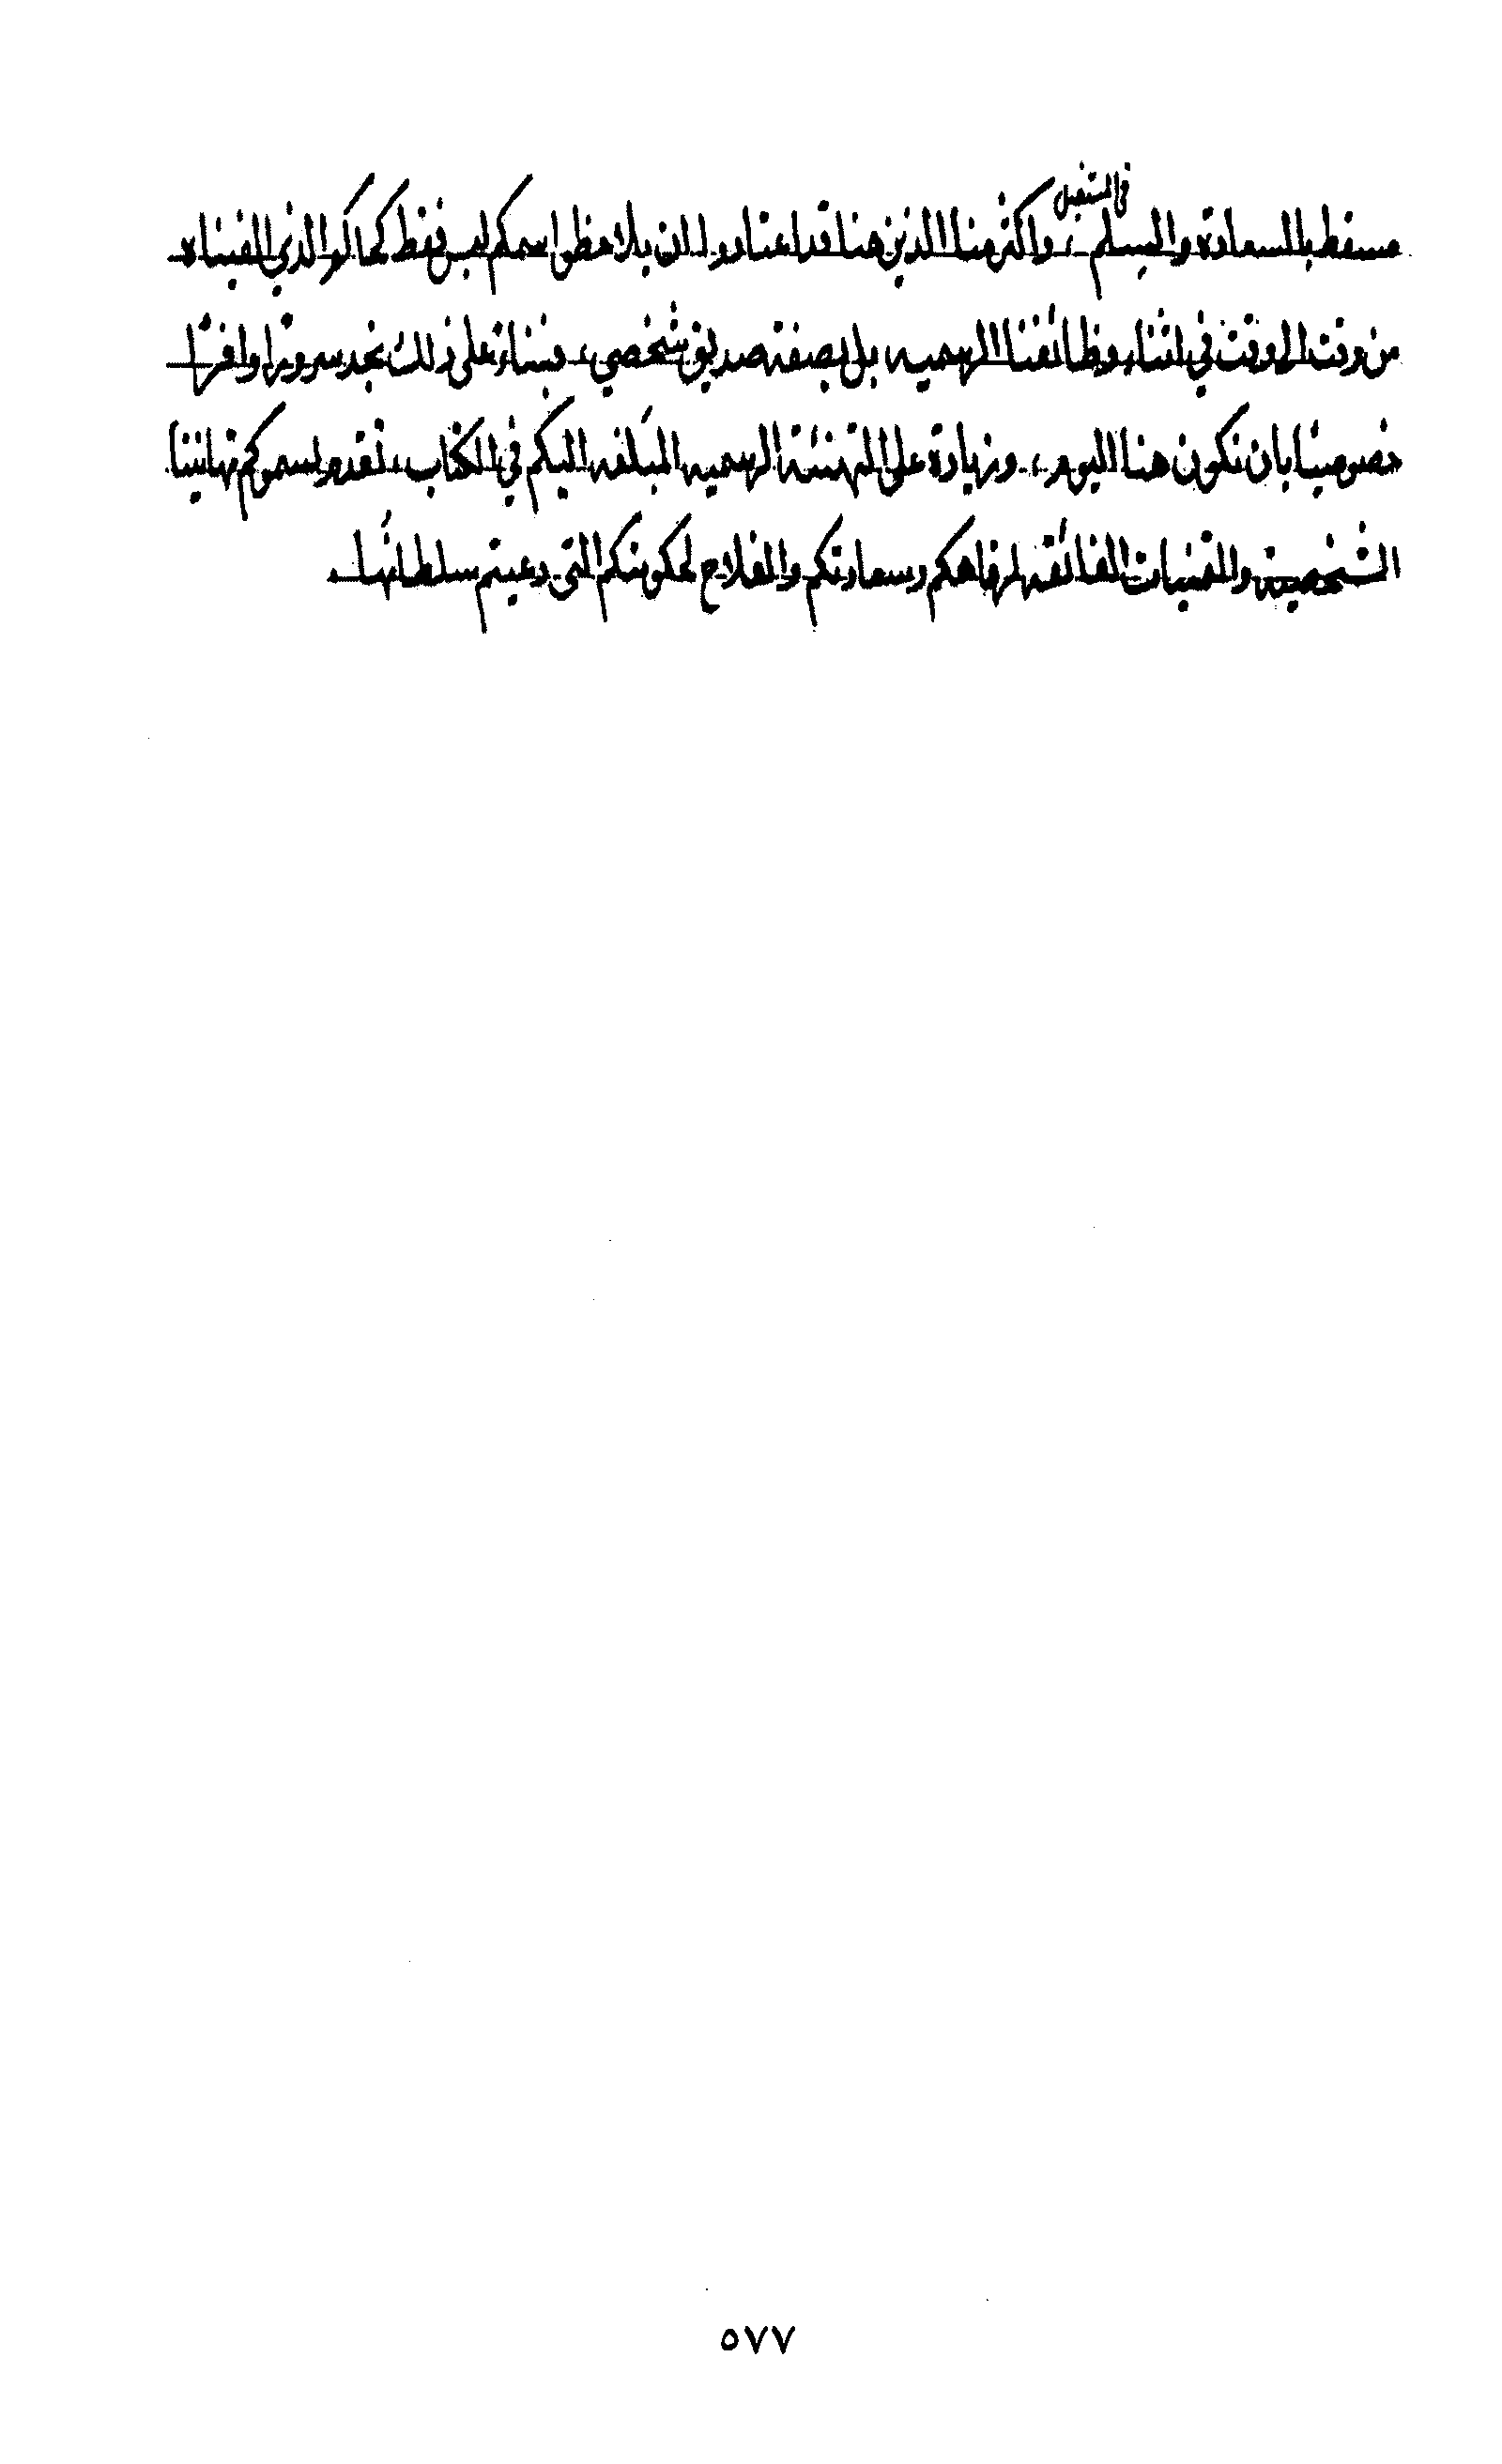 في المستقبل
مسقط بالسعادة والسلم ، واكثرمنا الذين هنا قد اعتادوا ان يلاحظوا سموكم ليس فقط كحاكم الذي القيناه
من وقت الى وقت في اثناء وظائفنا الرسميه ، بل بصفة صديق شخصي ، فبناء على ذلك نجد سرورًا وافرًا
خصوصيًا بان نكون هنا اليوم ، وزيادة على التهنئة الرسميه المبلغه اليكم في الكتاب ، نقدم لسموكم تهانينا
الشخصية والتمنيات الفائقه لرفاهكم وسعادتكم والفلاح لحكومتكم التى دعيتم سلطانها .
٥٧٧